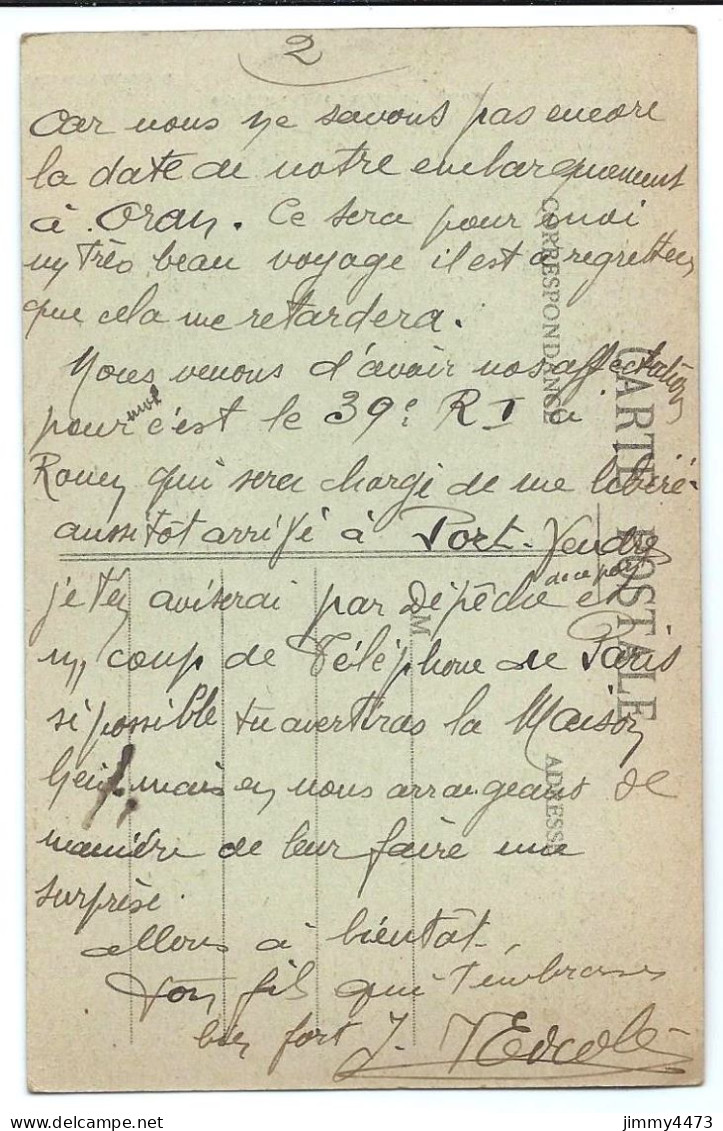 2
Car nous ne savons pas encore
la date de notre embarquement
à Oran. Ce sera pour moi
un très beau voyage il est à regretter
que cela me retardera.
Nous venons d'avoir nos affectation
pour moi c'est le 39e R I à
Rouen qui sera chargé de me libéré
aussitôt arrivé à Port-Vendres
je t'en aviserai par Dépêche de ce pays en
un coup de Téléphone de Paris
si possible tu avertiras la Maison
mais en nous arrangeant de
manière de leur faire une
surprèse.
allons à bientôt.
Ton fils qui t'embrasses
bien fort J.
CARTE POSTALE
CORRESPONDANCE
ADRESSE
M
jimmy4473